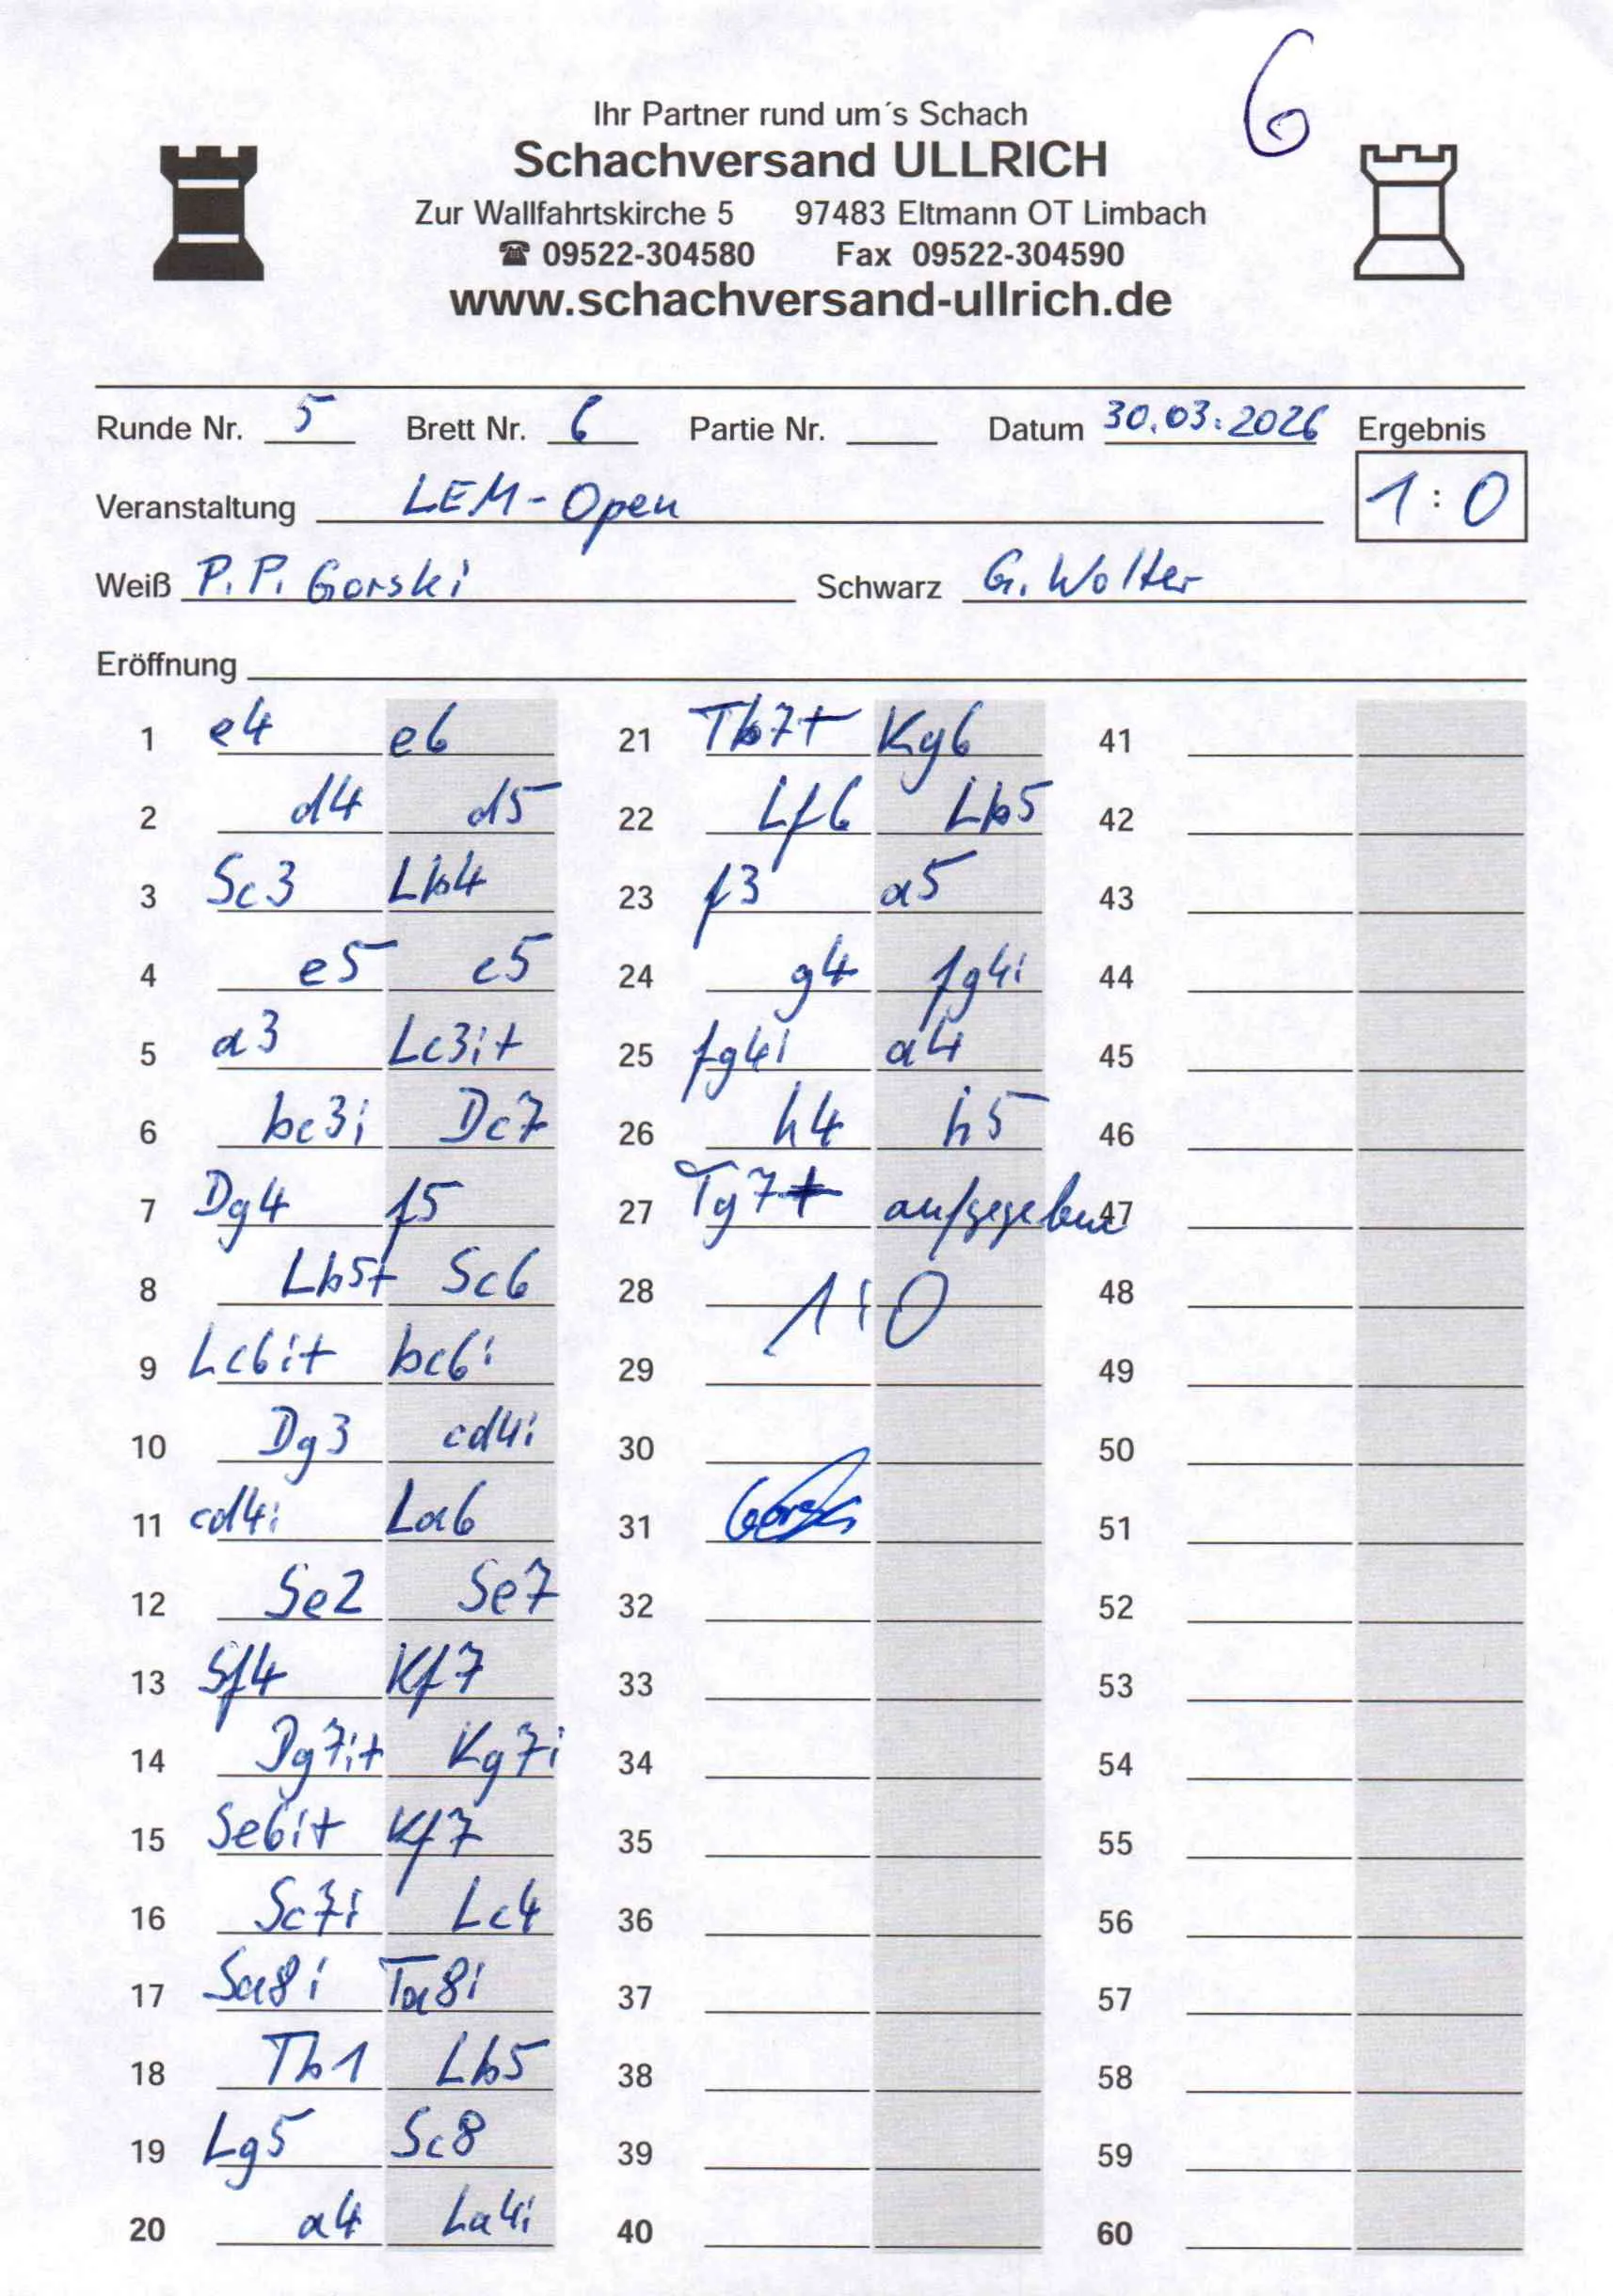 6
Ihr Partner rund um´s Schach
Schachversand ULLRICH
Zur Wallfahrtskirche 5 97483 Eltmann OT Limbach
☎ 09522-304580 Fax 09522-304590
www.schachversand-ullrich.de
Runde Nr. 5 Brett Nr. 6 Partie Nr. Datum 30.03.2026 Ergebnis
Veranstaltung LEM-Open 1:0
Weiß P.P. Gorski Schwarz G. Wolter
Eröffnung
1 e4 e6 21 Tb7+ Kg6 41
2 d4 d5 22 Lf6 Lb5 42
3 Sc3 Lb4 23 f3 a5 43
4 e5 c5 24 g4 fg4: 44
5 a3 Lc3:+ 25 fg4: a4 45
6 bc3: Dc7 26 h4 h5 46
7 Dg4 f5 27 Tg7+ aufgegeben 47
8 Lb5+ Sc6 28 1:0 48
9 Lc6:+ bc6: 29 49
10 Dg3 cd4: 30 50
11 cd4: La6 31 51
12 Se2 Se7 32 52
13 Sf4 Kf7 33 53
14 Dg7:+ Kg7: 34 54
15 Se6:+ Kf7 35 55
16 Sc7: Lc4 36 56
17 Sa8: Ta8: 37 57
18 Tb1 Lb5 38 58
19 Lg5 Sc8 39 59
20 a4 La4: 40 60